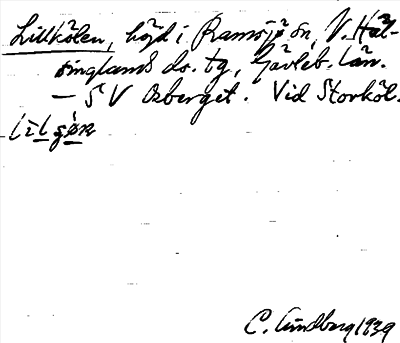 Lillkölen, höjd i Ramsjö sn, V. Häl-
singlands ds. tg, Gävleb. län.
— S V Osberget. Vid Storköl.
C. Lundberg 1939